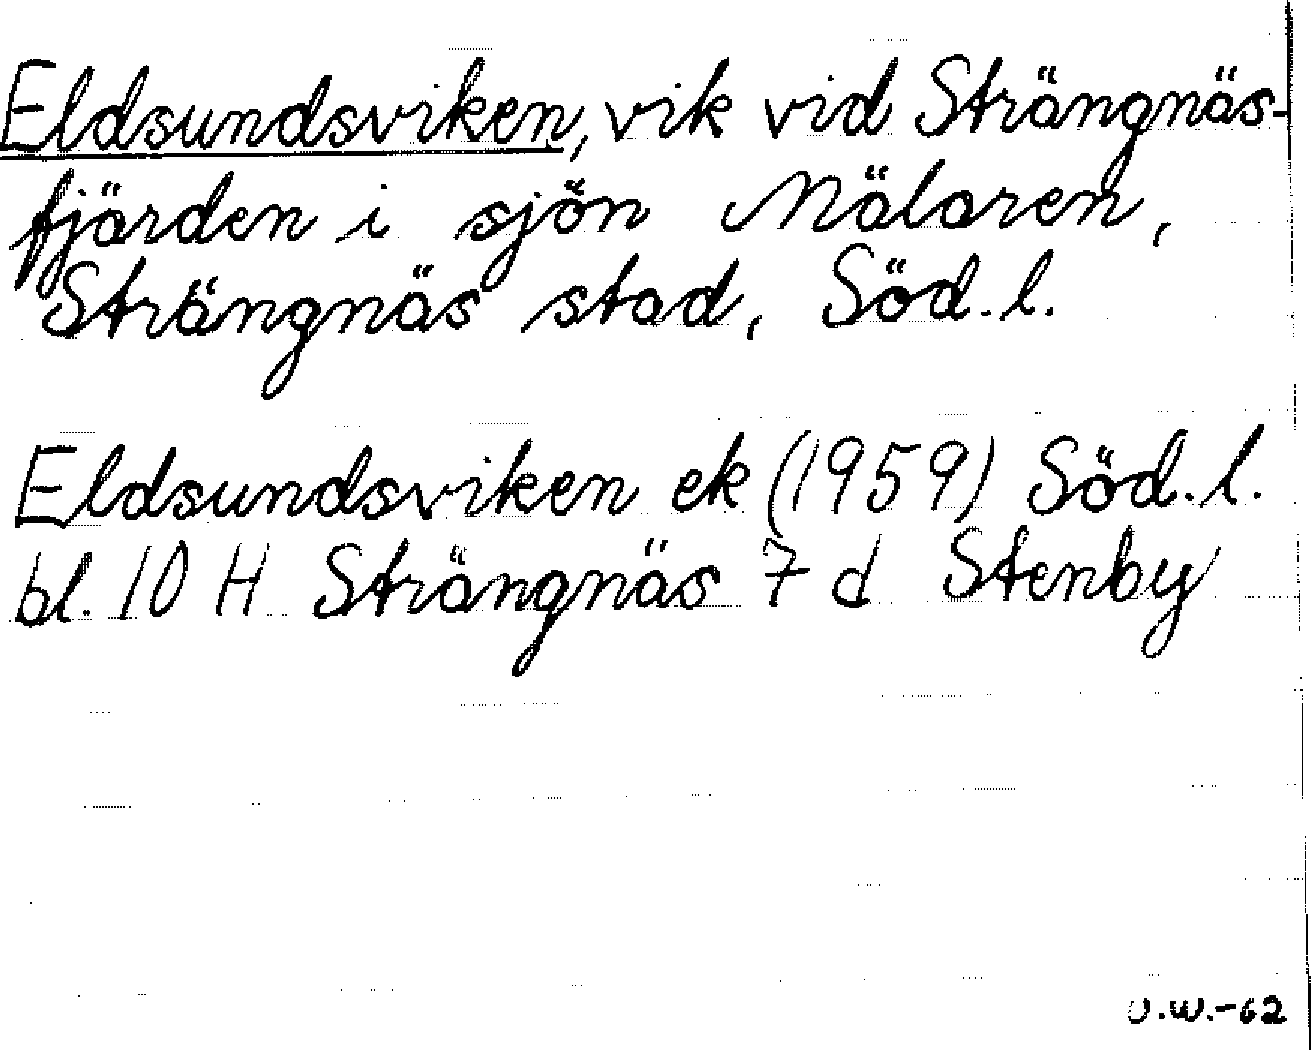 Eldsundsviken, vik vid Strängnäs-
fjärden i sjön Mälaren,
Strängnäs stad, Söd. l.
Eldsundsviken ek (1959) Söd. l.
bl. 10 H Strängnäs 7 d Stenby
U.W.-62